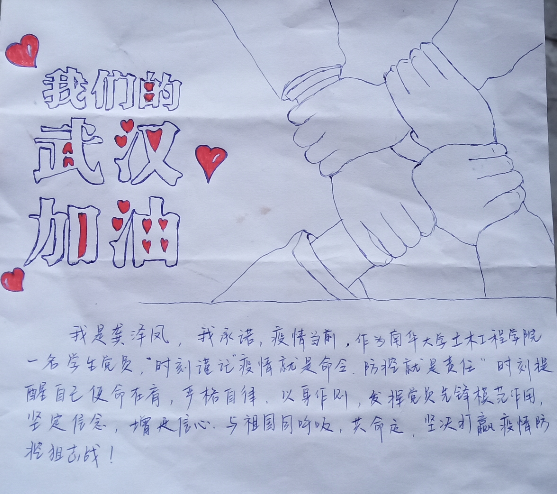 我们的
武汉
加油
我是龚泽凤，我承诺，疫情当前，作为南华大学土木工程学院
一名学生党员，“时刻谨记“疫情就是命令、防控就是责任”时刻提
醒自己使命在肩，严格自律、以身作则，发挥党员先锋模范作用，
坚定信念，增进信心、与祖国同呼吸，共命运，坚决打赢疫情防
控狙击战！